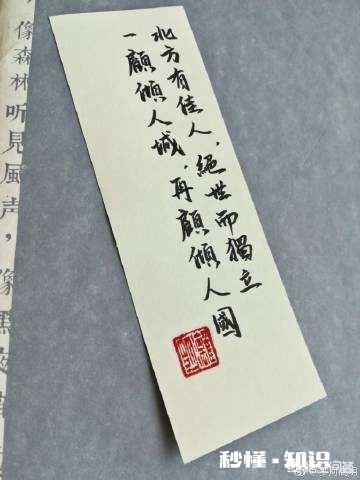 北方有佳人，絕世而獨立
一顧傾人城，再顧傾人國
像森林听見風声，像
秒懂·知识